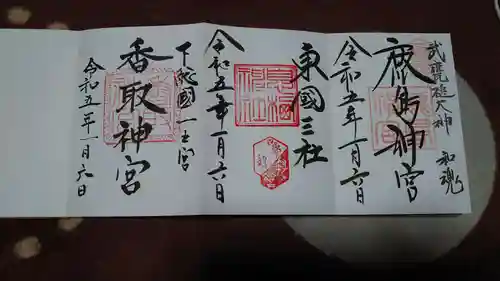 武甕槌大神 和魂
鹿島神宮
令和五年一月六日
東國三社
息栖神社
令和五年一月六日
下総國一之宮
香取神宮
令和五年一月六日